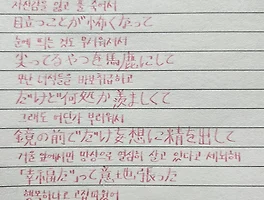 자신감을 잃고 풀 죽어서
目立つことが怖くなって
눈에 띄는 것도 무서워져서
尖ってるやつを馬鹿にして
녀석들을 바보취급하고
だけど何処か羨ましくて
그래도 어딘가 부러워서
鏡の前でだけ妄想に精を出して
거울 앞에서만 망상으로 열심히 살고 있다고
「幸福だ」って意地張った